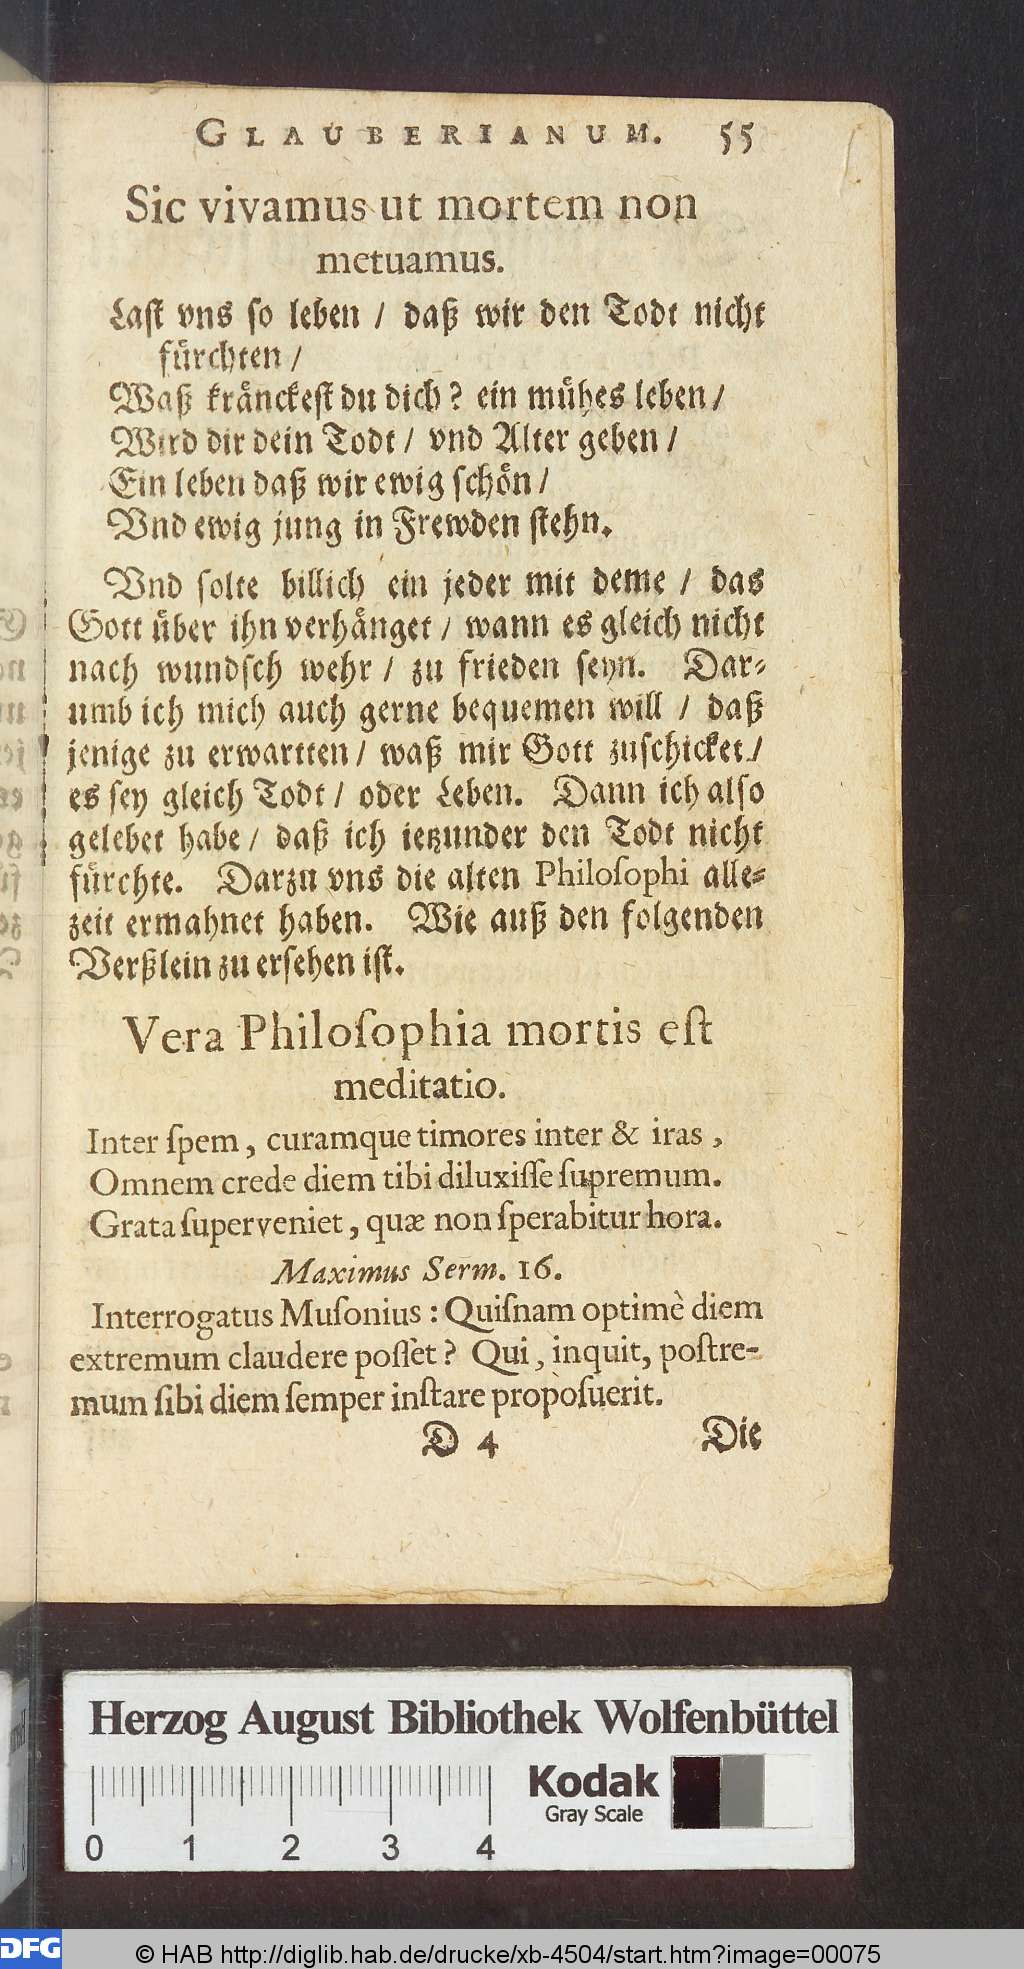 GLAUBERIANUM. 55
Sic vivamus ut mortem non
metuamus.
Last vns so leben / daß wir den Todt nicht
fürchten /
Waß kränckest du dich? ein mühes leben /
Wird dir dein Todt / vnd Alter geben /
Ein leben daß wir ewig schön /
Vnd ewig jung in Frewden stehn.
Vnd solte billich ein jeder mit deme / das
Gott über ihn verhänget / wann es gleich nicht
nach wundsch wehr / zu frieden seyn. Dar-
umb ich mich auch gerne bequemen will / daß
jenige zu erwartten / waß mir Gott zuschicket /
es sey gleich Todt / oder Leben. Dann ich also
gelebet habe / daß ich ietzunder den Todt nicht
fürchte. Darzu vns die alten Philoſophi alle-
zeit ermahnet haben. Wie auß den folgenden
Verßlein zu ersehen ist.
Vera Philoſophia mortis eſt
meditatio.
Inter ſpem, curamque timores inter & iras,
Omnem crede diem tibi diluxiſſe ſupremum.
Grata ſuperveniet, quæ non ſperabitur hora.
Maximus Serm. 16.
Interrogatus Muſonius: Quiſnam optimè diem
extremum claudere poſſet? Qui, inquit, poſtre-
mum ſibi diem ſemper inſtare propoſuerit.
D 4 Die
Herzog August Bibliothek Wolfenbüttel
Kodak
Gray Scale
0 1 2 3 4
DFG © HAB http://diglib.hab.de/drucke/xb-4504/start.htm?image=00075